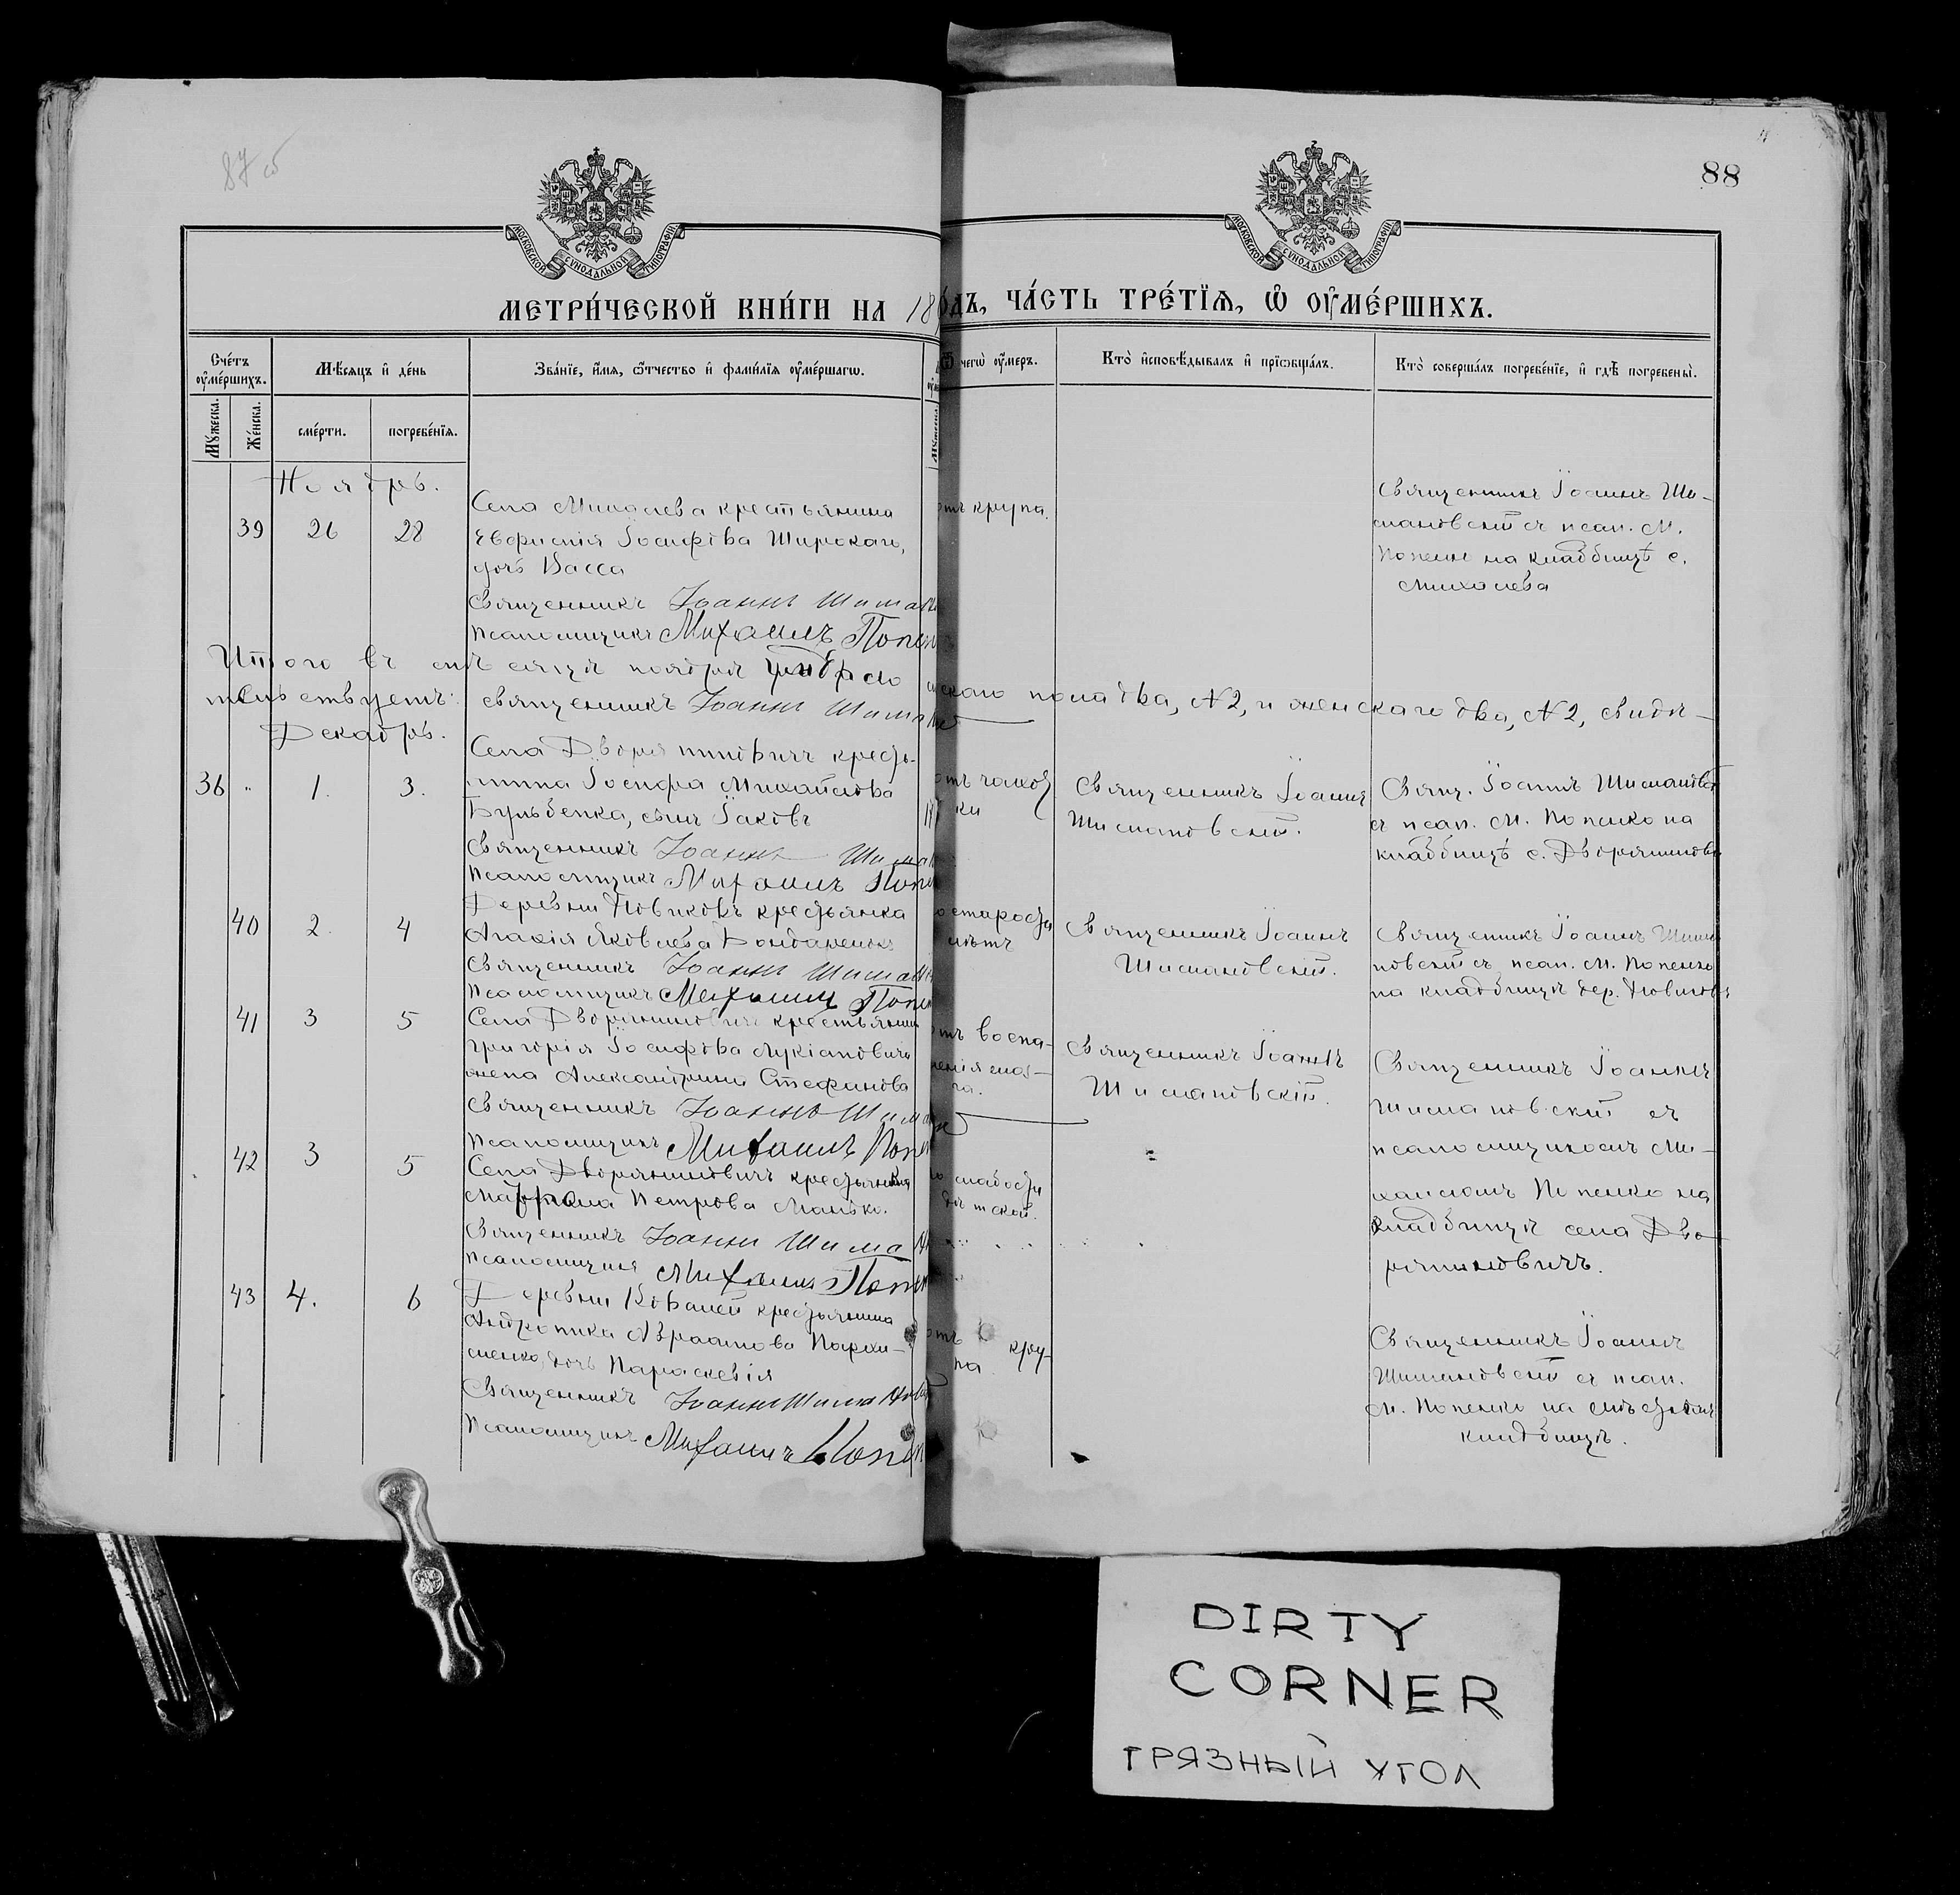 87 об
88
МОСКОВСКОЙ СУНОДАЛЬНОЙ ТИПОГРАФІИ
МОСКОВСКОЙ СУНОДАЛЬНОЙ ТИПОГРАФІИ
МЕТРИ́ЧЕСКОЙ КНИ́ГИ НА 18
О́ДЪ, ЧА́СТЬ ТРЕ́ТІѦ, Ѡ҆ ОУ҆МЕ́РШИХЪ.
Сче́тъ оу҆ме́ршихъ.
Мѣ́сяцъ и҆ де́нь
Зва́нїе, и҆́мя, ѻ҆́тчество и҆ фами́лїя оу҆ме́ршагѡ.
Ѿ чегѡ̀ оу҆́меръ.
Кто̀ и҆сповѣ́дывалъ и҆ прїѡбща́лъ.
Кто̀ соверша́лъ погребе́нїе, и҆ гдѣ̀ погребены̀.
Мꙋ́жеска.
Же́нска.
сме́рти.
погребе́нїя.
Ноябрь.
39 26 28
Села Михалева крестьянина
Іосифова Широкаго,
дочь Васса
Священникъ Іоаннъ
Псаломщикъ Михаилъ
отъ крупа.
Священникъ Іоаннъ Ши-
мановскій съ псал. М.
Попенко на кладбищѣ с.
Михалева
Итого въ ноября умерло
ского пола два, №2, и женскаго два, №2, свидѣ-
тельствуетъ:
священникъ Іоаннъ
Декабрь.
36 " 1. 3.
Села Дворяниновичъ кресть-
янина Іосифа Михайлова
сынъ Іаковъ
Священникъ Іоаннъ
Псаломщикъ Михаилъ
отъ чахот
ки
Священникъ Іоаннъ
Шимановскій.
Свящ. Іоаннъ Шимановскій
съ псал. М. Попенко на
кладбищѣ с.
40 2. 4
Деревни Новиковъ крестьянка
Агафія Яковлева
Священникъ Іоаннъ
Псаломщикъ Михаилъ
старости
лѣтъ
Священникъ Іоаннъ
Шимановскій.
Священникъ Іоаннъ Шима-
новскій съ псал. М. Попенко
на кладбищѣ дер. Новиковъ
41 3 5
Села Дворяниновичъ крестьянина
Григорія Іосифова Лукіановича
жена Александрина Стефанова
Священникъ Іоаннъ
Псаломщикъ Михаилъ
отъ воспа-
ленія моз-
га.
Священникъ Іоаннъ
Шимановскій.
Священникъ Іоаннъ
Шимановскій съ
псаломщикомъ Ми-
хаиломъ Попенко на
кладбищѣ села Дво-
ряниновичъ.
42 3 5
Села Дворяниновичъ крестьянка
Петрова Манько.
Священникъ Іоаннъ
Псаломщикъ Михаилъ
слабости
дѣтской.
43 4. 6
Деревни Ковалей крестьянина
Андроника Авраамова Пархи-
менко, дочь Параскевія
Священникъ Іоаннъ
Псаломщикъ Михаилъ
отъ кру-
па
Священникъ Іоаннъ
Шимановскій съ псал.
М. Попенко на мѣстномъ
кладбищѣ.
DIRTY
CORNER
ГРЯЗНЫЙ УГОЛ